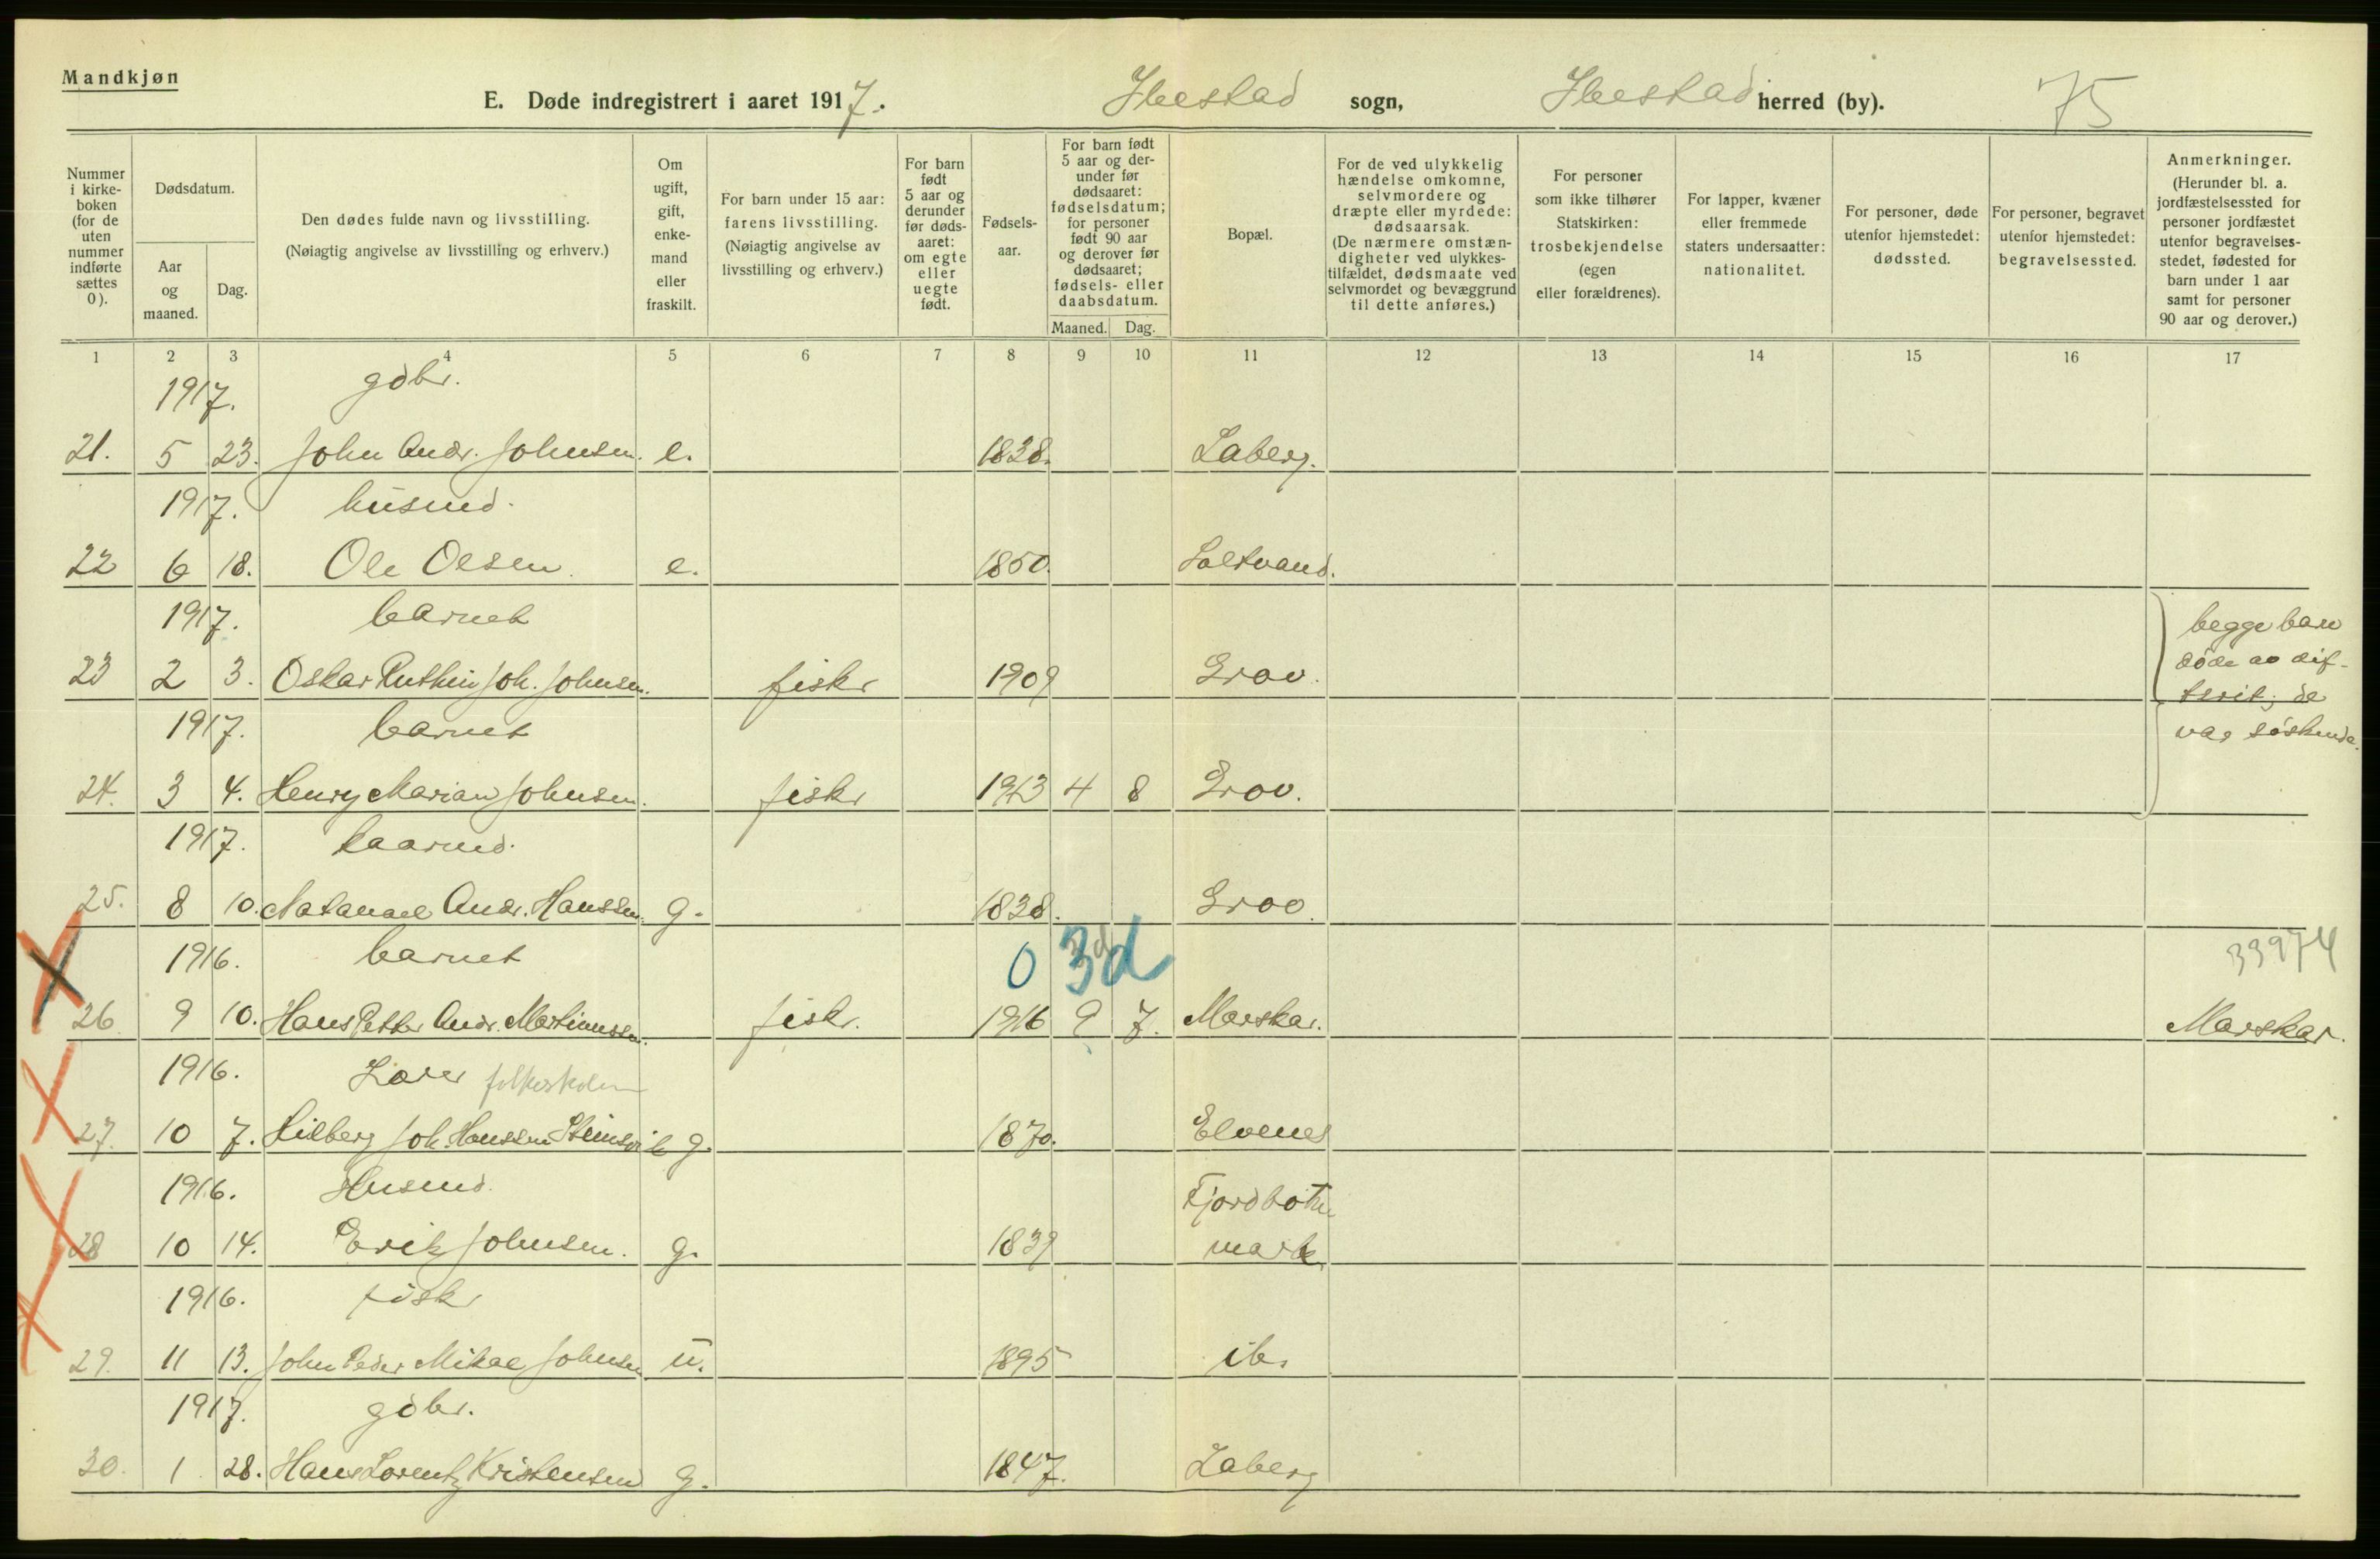 Mandkjøn
E. Døde indregistrert i aaret 1917. Ibestad sogn, Ibestad herred (by). 75
Nummer i kirke-boken (for de uten nummer indførte sættes 0).
Dødsdatum.
Aar og maaned.
Dag.
Den dødes fulde navn og livsstilling.
(Nøiagtig angivelse av livsstilling og erhverv.)
Om ugift, gift, enke-mand eller fraskilt.
For barn under 15 aar: farens livsstilling. (Nøiagtig angivelse av livsstilling og erhverv.)
For barn født 5 aar og derunder før døds-aaret: om egte eller uegte født.
Fødsels-aar.
For barn født 5 aar og der-under før dødsaaret: fødselsdatum; for personer født 90 aar og derover før dødsaaret; fødsels- eller daabsdatum.
Maaned. Dag.
Bopæl.
For de ved ulykkelig hændelse omkomne, selvmordere og dræpte eller myrdede: dødsaarsak. (De nærmere omstæn-digheter ved ulykkes-tilfældet, dødsmaate ved selvmordet og bevæggrund til dette anføres.)
For personer som ikke tilhører Statskirken: trosbekjendelse (egen eller forældrenes).
For lapper, kvæner eller fremmede staters undersaatter: nationalitet.
For personer, døde utenfor hjemstedet: dødssted.
For personer, begravet utenfor hjemstedet: begravelsessted.
Anmerkninger. (Herunder bl. a. jordfæstelsessted for personer jordfæstet utenfor begravelses-stedet, fødested for barn under 1 aar samt for personer 90 aar og derover.)
1 2 3 4 5 6 7 8 9 10 11 12 13 14 15 16 17
1917. gdbr.
21. 5 23. John Andr. Johnsen. e. 1838. Laberg.
1917. husmd.
22 6 18. Ole Olsen. e. 1850. Saltvand.
1917. barnet
23 2 3. Oskar Joh. Johnsen. fisker 1909 Grov.
begge barn
døde av dif-
terit; de
var søskende.
1917. barnet
24. 3 4. Henry Marian Johnsen. fisker 1913 4 8 Grov.
1917. kaarmd.
25. 8 10. Natanael Andr. Hanssen. g. 1838. Grov.
1916. barnet 0 3d 33974
26. 9 10. Hans Petter Andr. Martinussen. fisker. 1916 9 7. Marskar. Marskar.
1916. Lærer folkeskolen
27. 10 7. Hilberg Joh. Hanssen g. 1870. Elvenes
1916. Husmd. Fjordbotn
28 10 14. Erik Johnsen. g. 1839 mark
1916. fisker
29. 11 13. John Peder Mikal Johnsen u. 1895 ib.
1917. gdbr.
30. 1 28. Hans Lorentz Kristensen g. 1847. Laberg